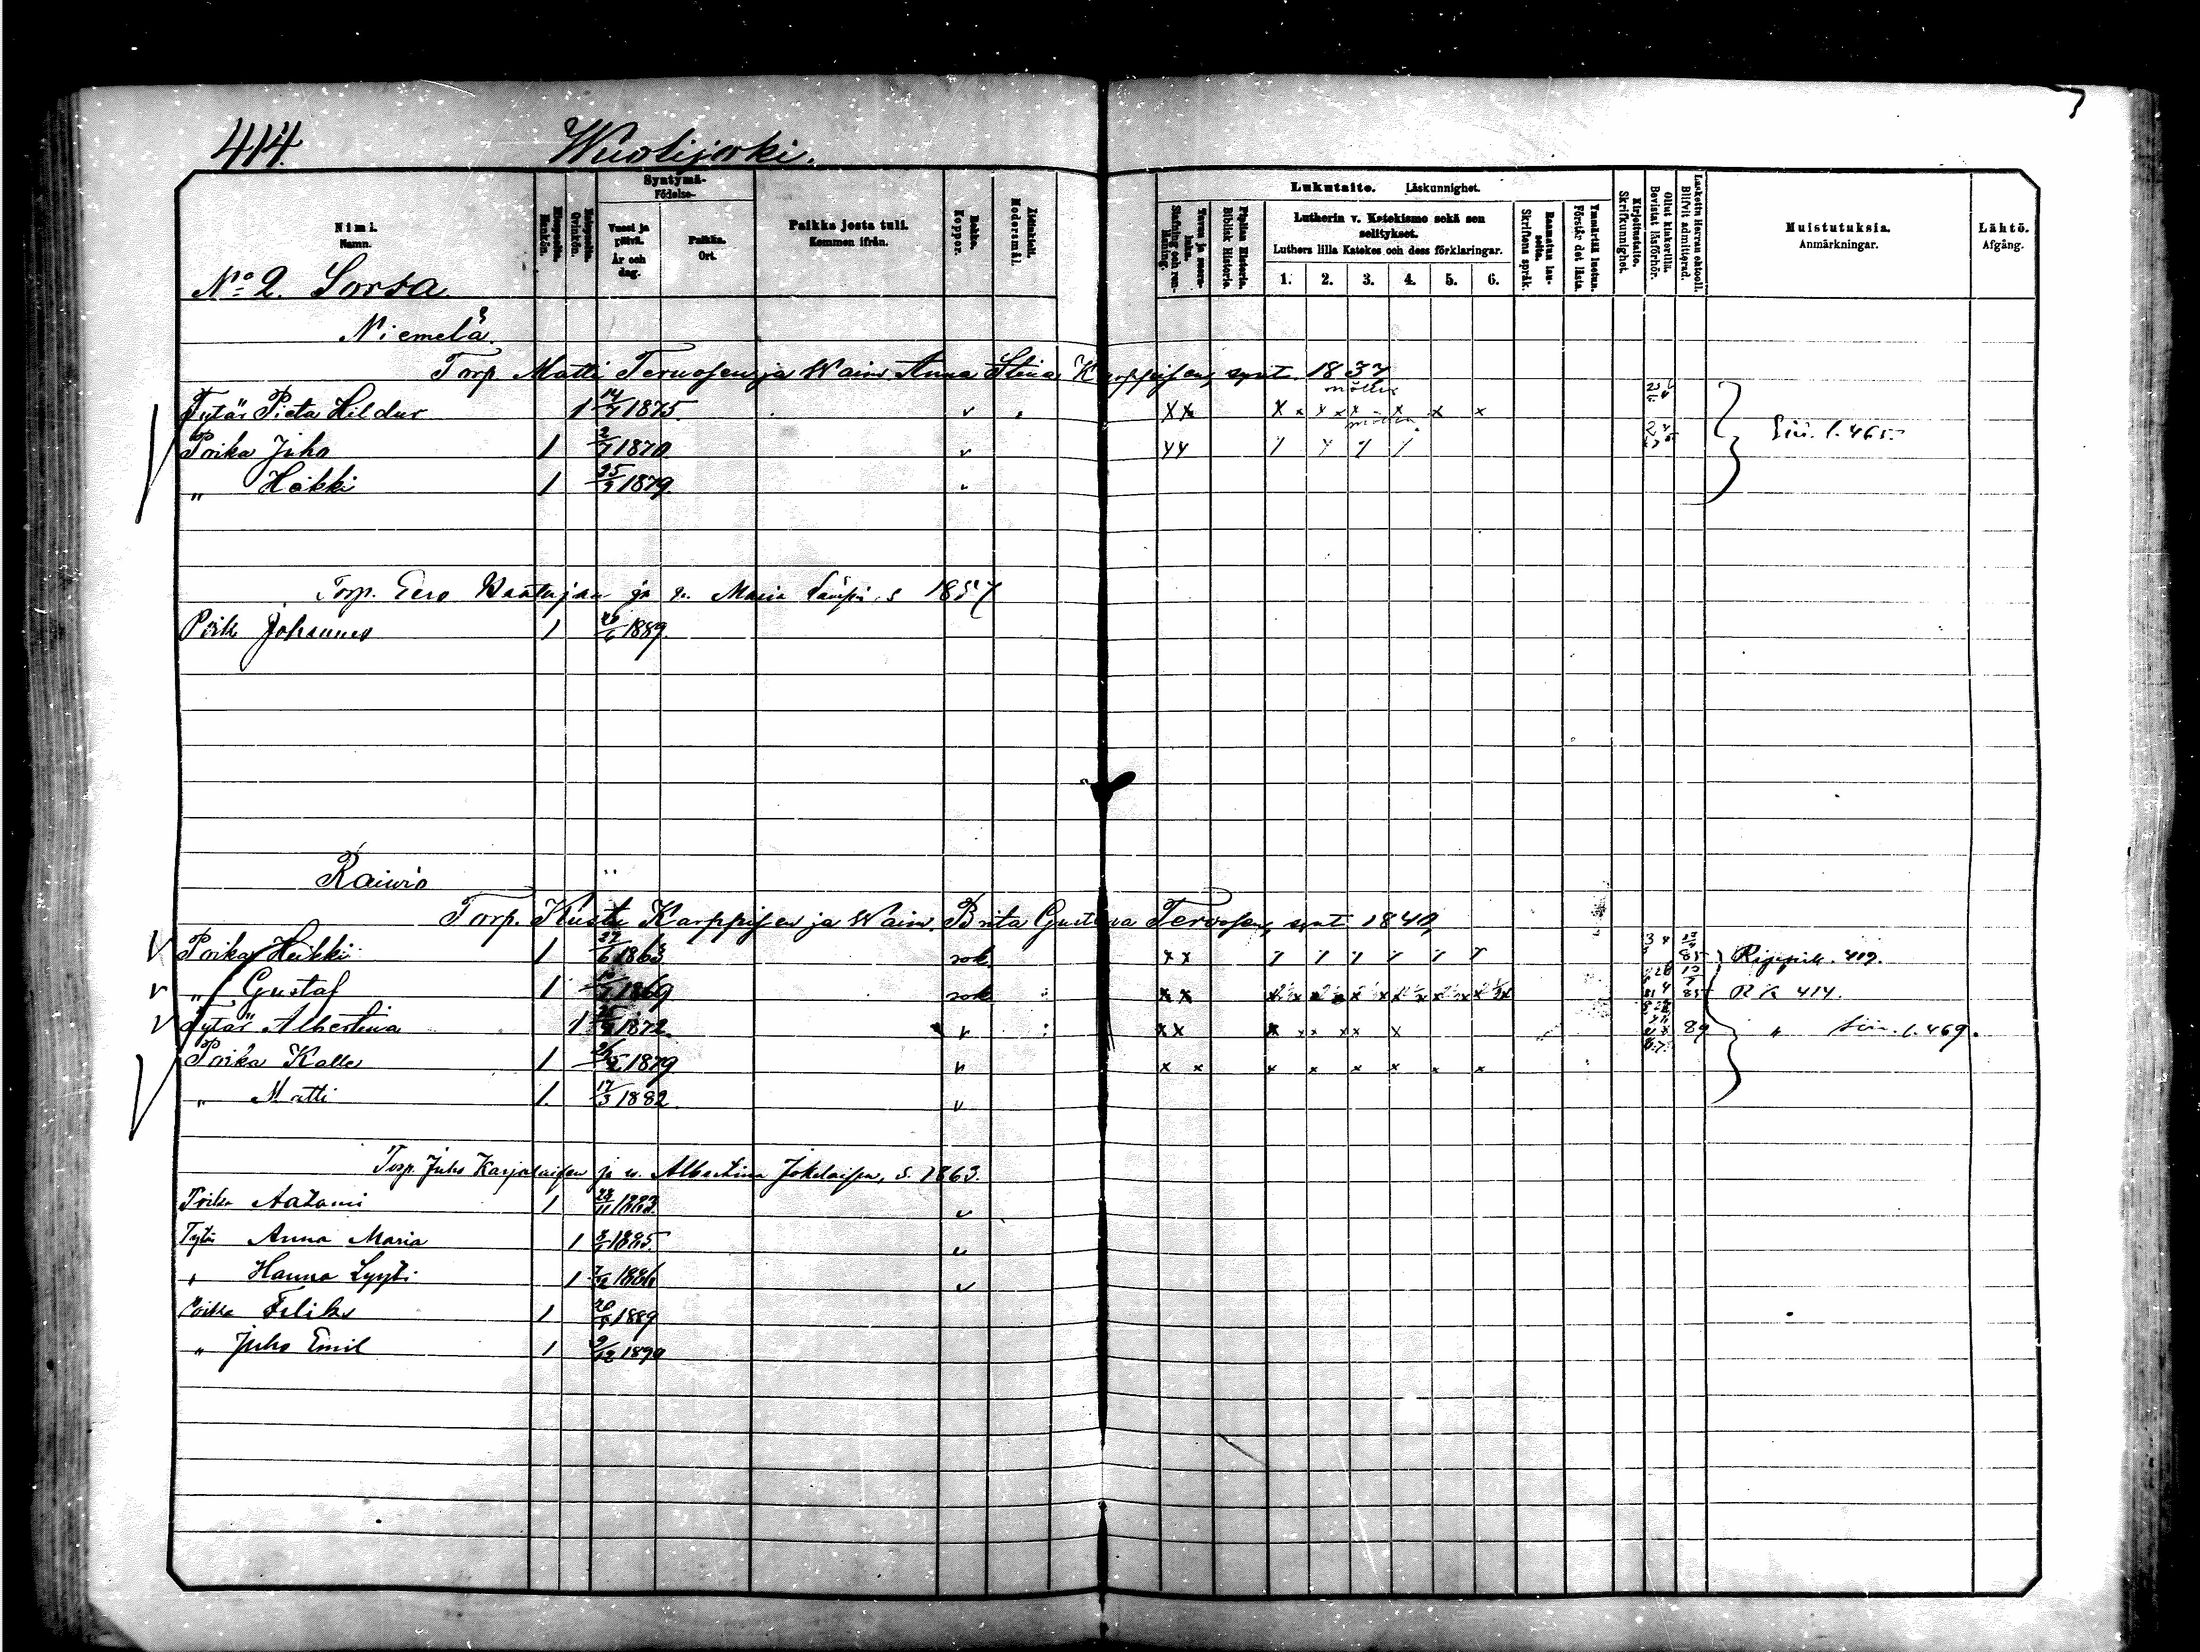 414. Wuolijoki.
Nimi.
Namn.
Miespuolia.
Mankön.
Naispuolia.
Qvinkön.
Syntymä-
Födelse-
Vuosi ja päivä.
År och dag.
Paikka.
Ort.
Paikka josta tuli.
Kommen ifrån.
Rokko.
Koppor.
Äidinkieli.
Modersmål.
Lukutaito. Läskunnighet.
Tavuu ja suora-luku.
Stafning och ren-läsning.
Piplian Historia.
Biblisk Historia.
Lutherin v. Katekismo sekä sen selitykset.
Luthers lilla Katekes och dess förklaringar.
1. 2. 3. 4. 5. 6.
Raamatun lauseita.
Skriftens språk.
Ymmärtää luetun.
Förstår det lästa.
Kirjoitustaito.
Skrifkunnighet.
Ollut kinkerillä.
Bevistat läsförhör.
Laskettu Herran ehtooll.
Blifvit admitterad.
Muistutuksia.
Anmärkningar.
Lähtö.
Afgång.
No 2. Sorsa
Niemelä.
Torp. Matti Tervosen ja Waim Anna Stina Karppisen, synt. 1837
Tytär Pieta Hildur 1 14/7 1875 v XX X x x x x x x x
Poika Juho 1 2/7 1870 v
Siv. l. 465
" Heikki 1 25/7 1879. v
Torp. Eero ja v. Maria s 1857
Poik Johannes 1 1889.
Raiwio
Torp. Kusta Karppisen ja Waim. Brita Gustava Tervosen, synt 1840,
Poika Heikki 1 27/6 1863 rok. xx 85 Rippik. 419.
" Gustaf 1 1869 rok xx 85 RK 414.
Tytär Albertina 1 1872 v xx x xx xx x 89 " Siv. l. 469.
Poika Kalle 1 1879 v x x x x x x x x
" Matti 1. 17/3 1882. v
Torp. Juho Karjalaisen ja v. Albertina Jokelaisen, s. 1863.
Poika Aatami 1 28/11 1883. v
Tytär Anna Maria 1 1885. v
" Hanna Lyyti 1 1886 v
Poika Feliks 1 1889
" Juho Emil 1 9/12 1890